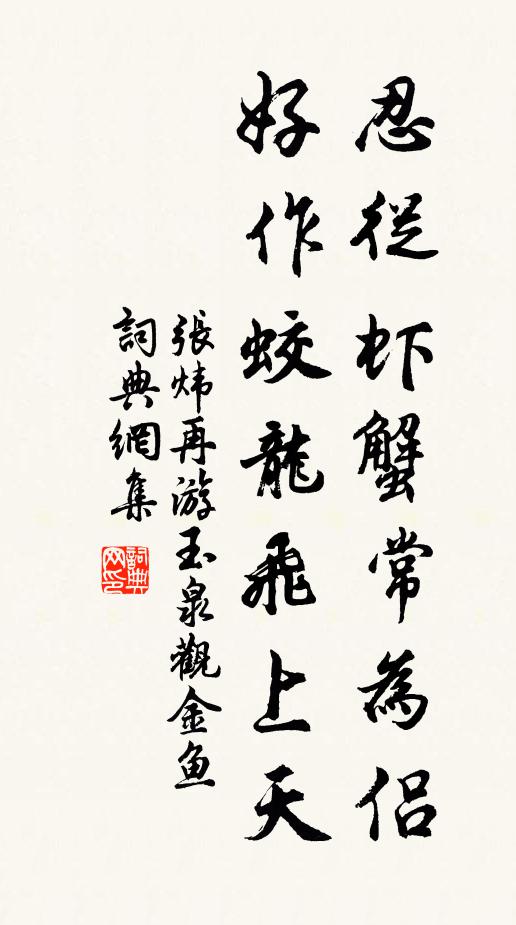 忍從虾蟹常為侣
好作蛟龍飛上天
張炜再游玉泉觀金鱼
詞典網集
詞典
网印